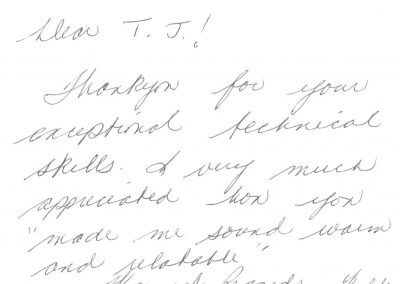 Dear T. J.!
Thankyou for your
exceptional technical
skills. I very much
appreciated how you
"made me sound warm
and relatable"